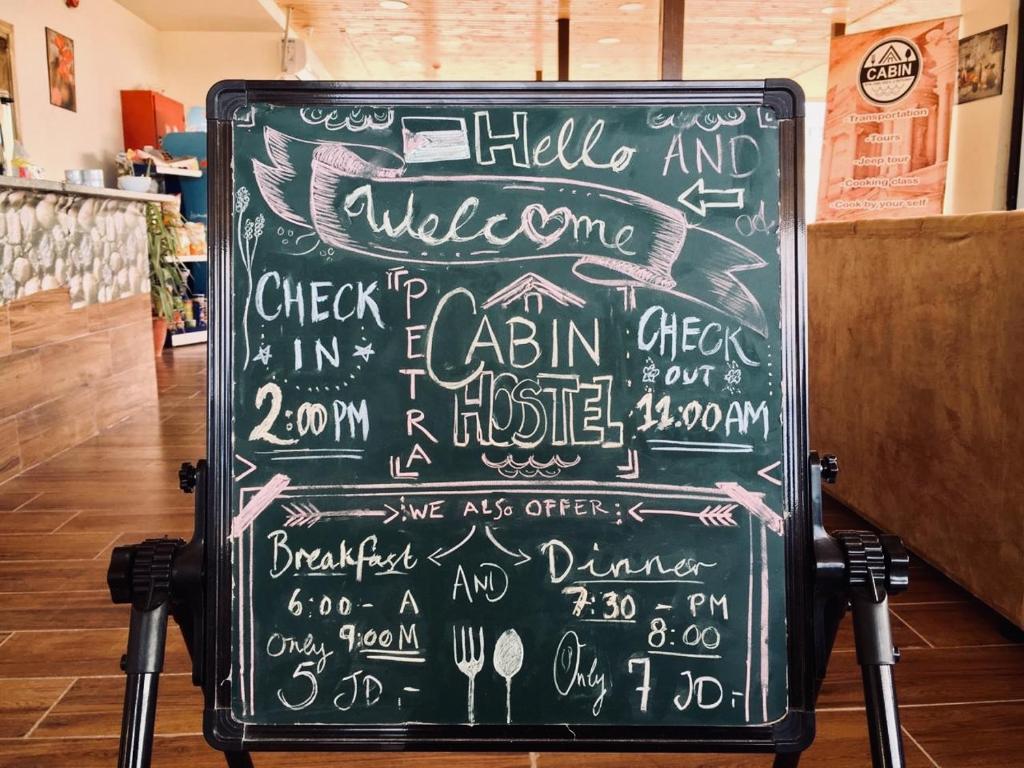 Hello AND
Welcome
CHECK
IN
2:00 PM
PETRA
CABIN
HOSTEL
CHECK
OUT
11:00 AM
WE ALSO OFFER:
Breakfast
6:00 - A
9:00 M
Only
5 JD -
AND
Dinner
7:30 - PM
8:00
Only
7 JD -
CABIN
Transportation
Tours
Jeep tour
Cooking class
Cook by your self